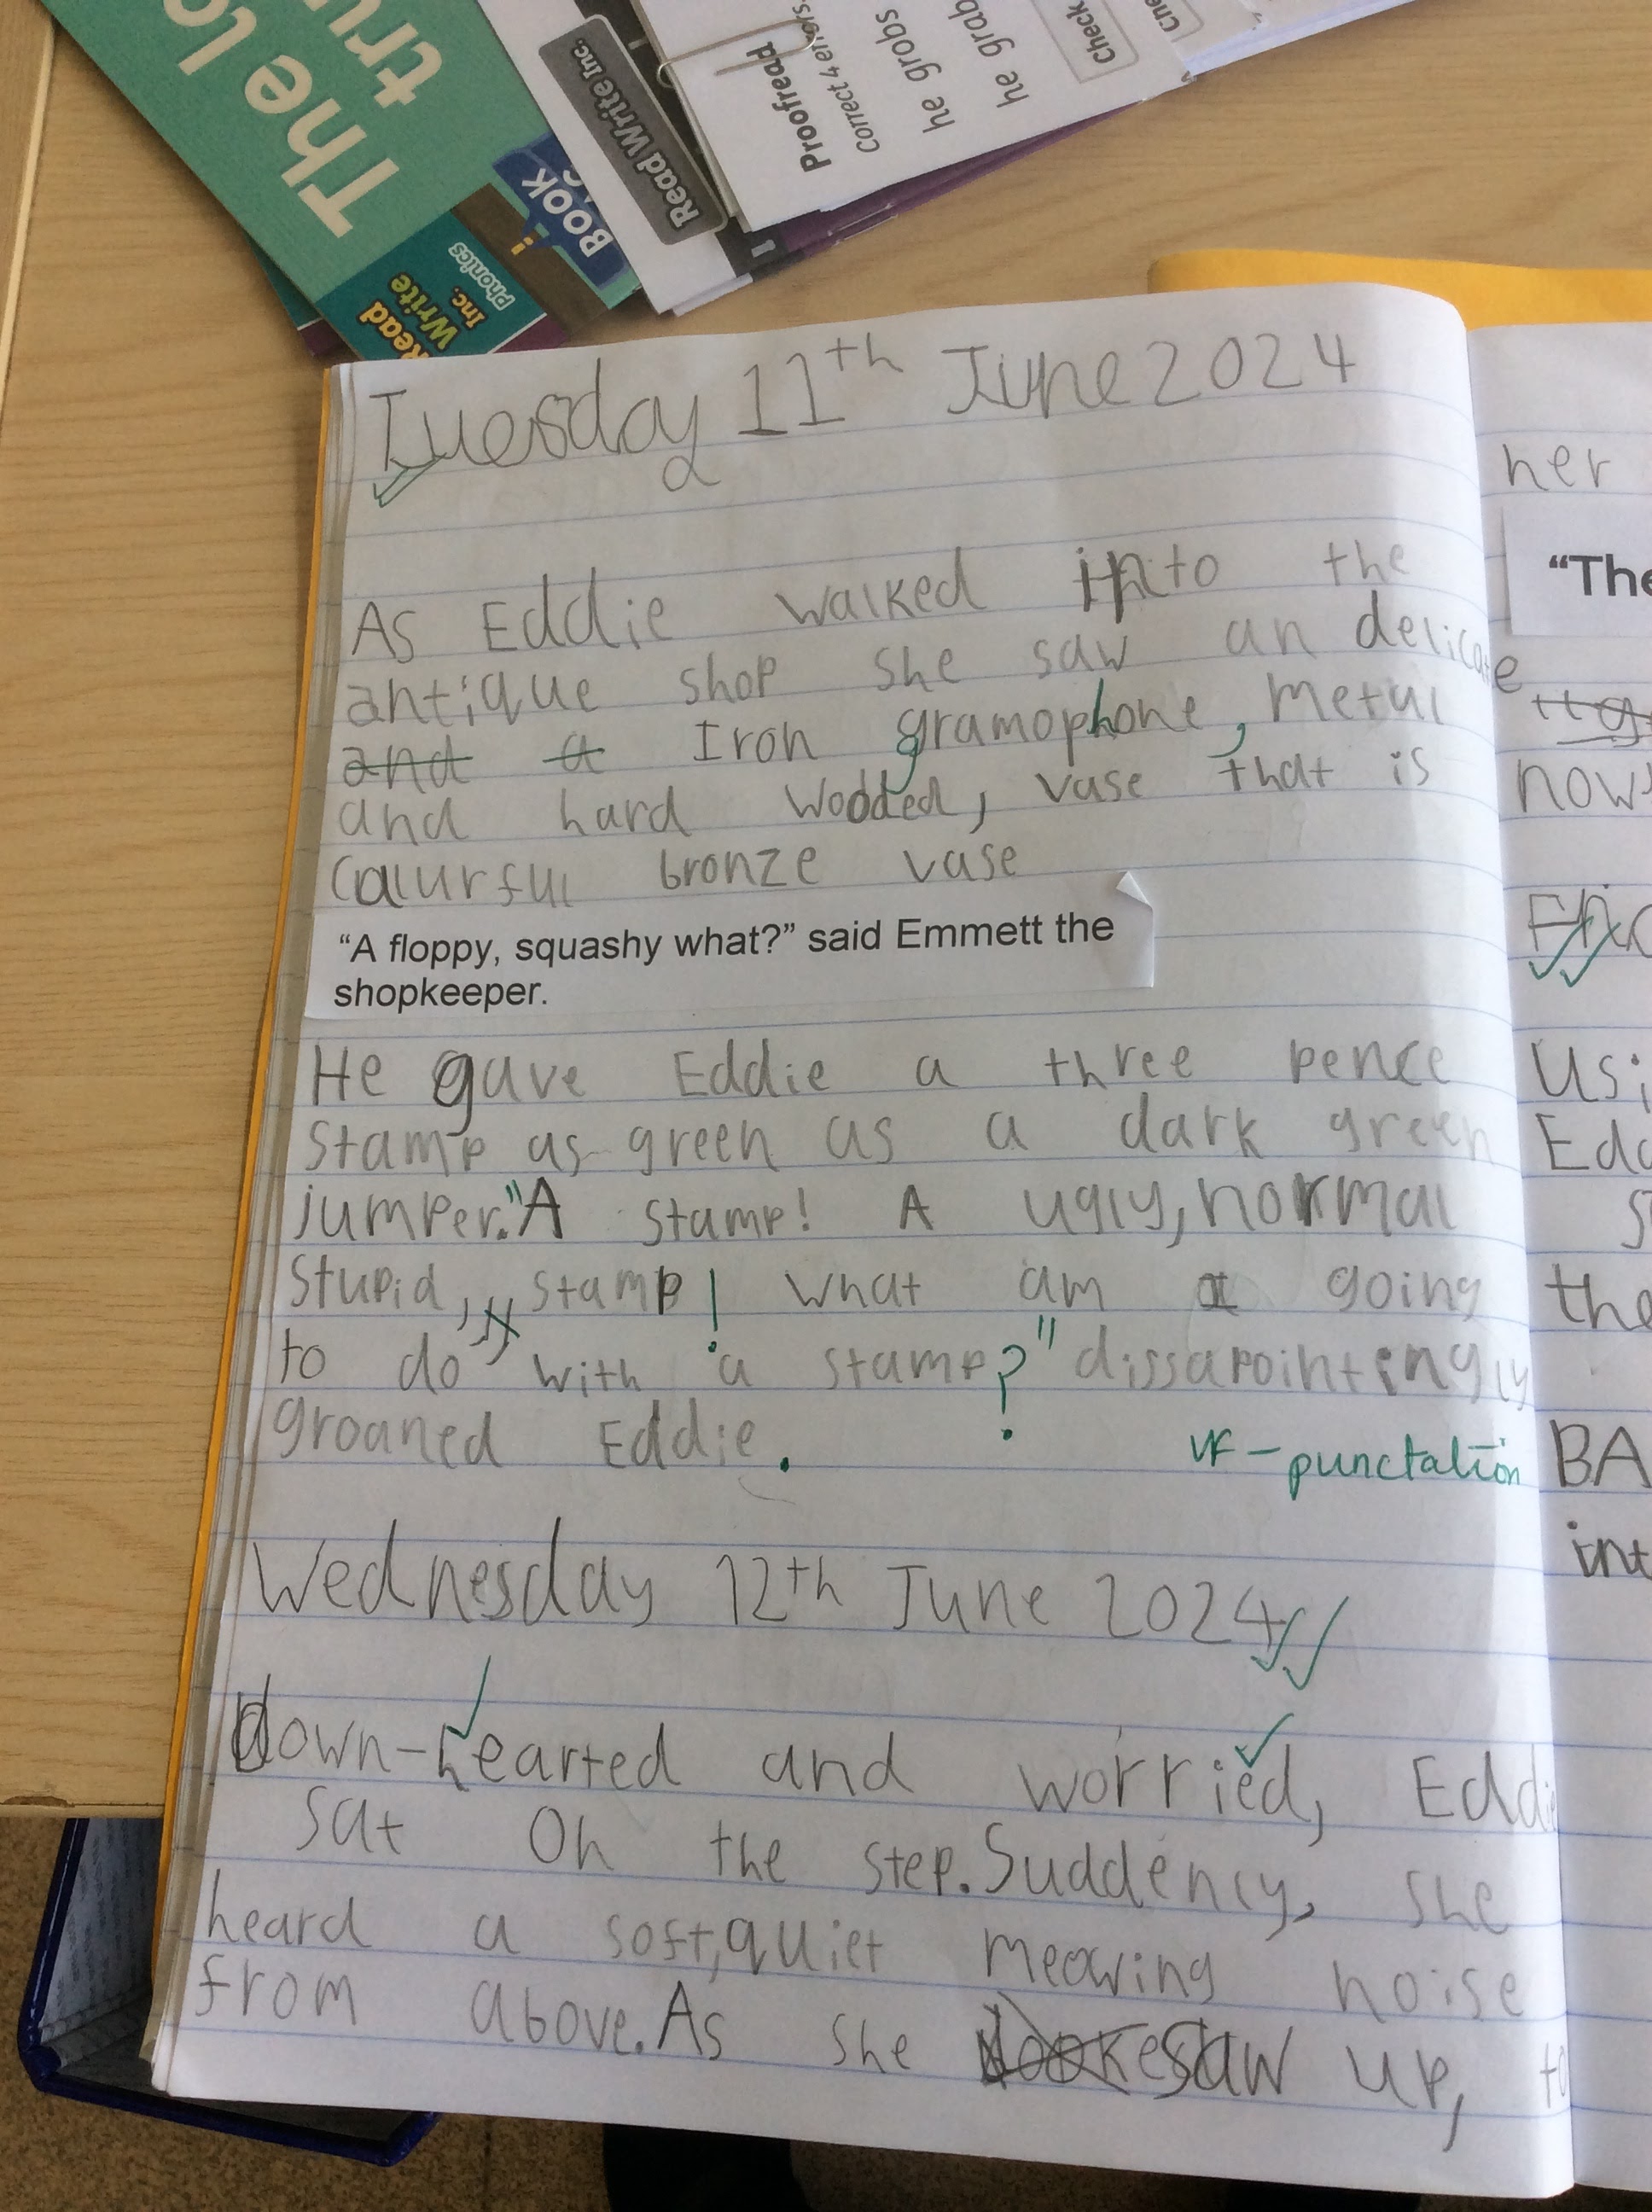 The
tru
BOOK
Read
Write
Inc.
Phonics
Read Write Inc.
1
Proofread
Correct 4 errors.
he grobs
he grab
Check
Tuesday 11th June 2024
As Eddie walked into the
antique shop she saw an delicate
and a Iron gramophone, Metal
and hard wodded, vase that is
calurful bronze vase
“A floppy, squashy what?” said Emmett the
shopkeeper.
He gave Eddie a three pence
stamp as green as a dark green
jumper."A stamp! A ugly, normal
stupid,,, stamp! what am I going
to do with a stamp?" dissapointingly
groaned Eddie.
VF - punctation
Wednesday 12th June 2024
down-hearted and worried, Eddie
sat on the step. Suddency, she
heard a soft, quiet meowing noise
from above. As she saw up, to
her
“The
now
Usi
Edd
the
BA
int